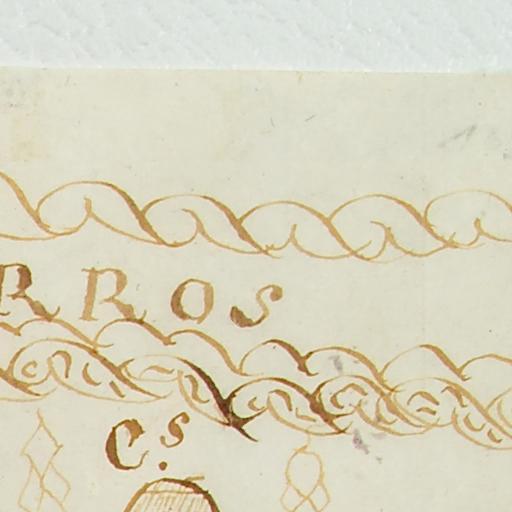 RROS
C.s